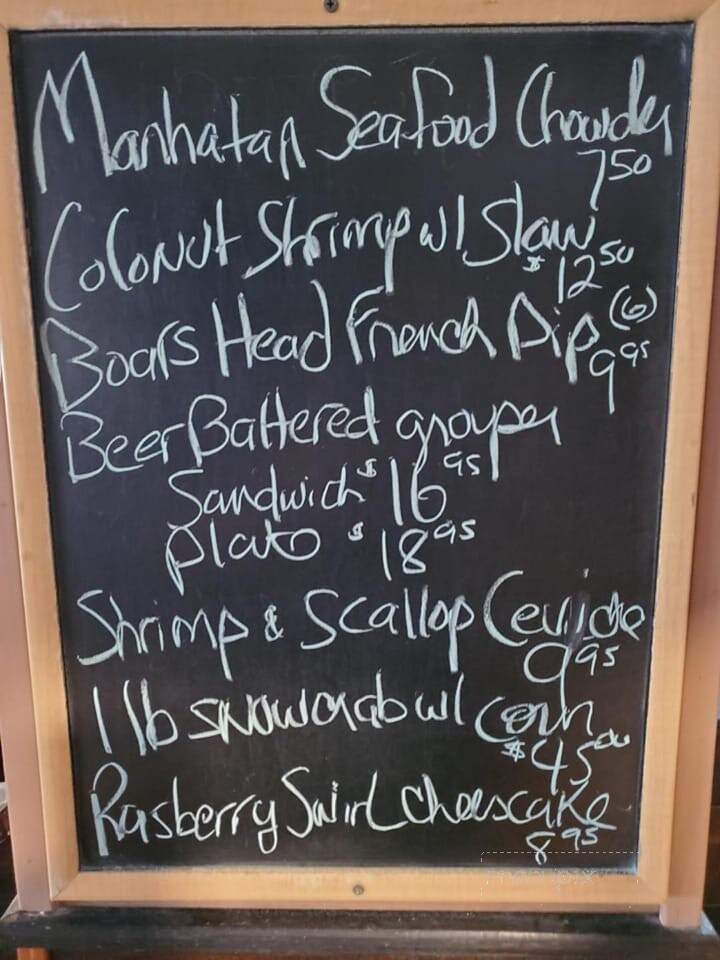 Manhatan Seafood Chowder
7 50
Coconut Shrimp w/ Slaw
$ 12 50
Boars Head French Dip (6)
9 95
Beer Battered grouper
Sandwich $ 16 95
plate $ 18 95
Shrimp & Scallop Ceviche
9 95
1 lb snowcrab w/ corn
$ 45 00
Rasberry Swirl cheescake
8 95